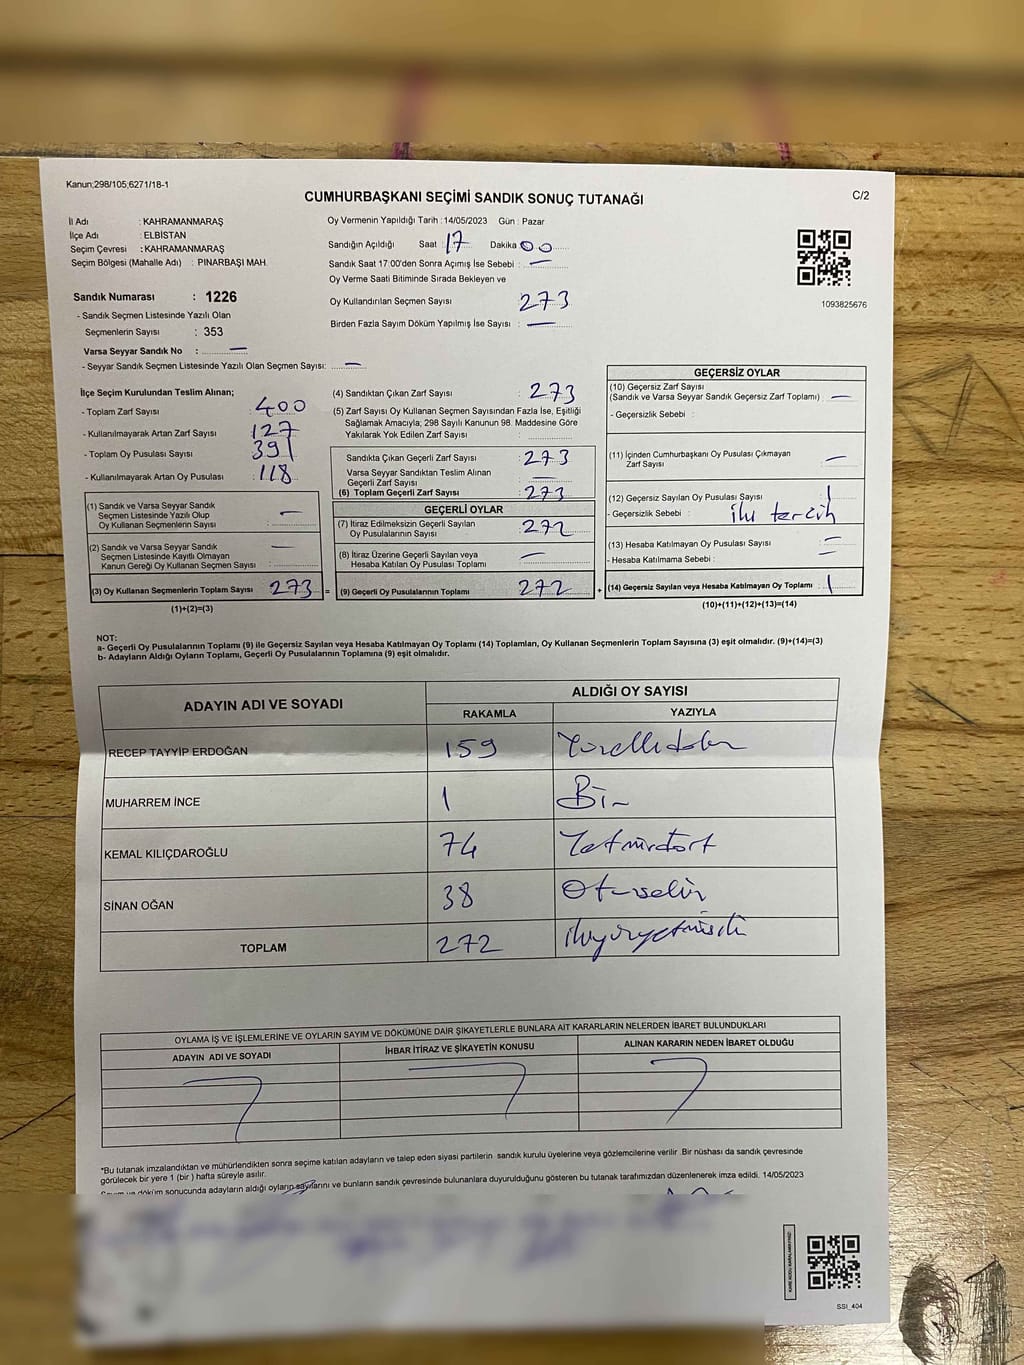 Kanun;298/105;6271/18-1
CUMHURBAŞKANI SEÇİMİ SANDIK SONUÇ TUTANAĞI
C/2
İl Adı : KAHRAMANMARAŞ
İlçe Adı : ELBİSTAN
Seçim Çevresi : KAHRAMANMARAŞ
Seçim Bölgesi (Mahalle Adı) : PINARBAŞI MAH.
Sandık Numarası : 1226
- Sandık Seçmen Listesinde Yazılı Olan
Seçmenlerin Sayısı : 353
Varsa Seyyar Sandık No : —
- Seyyar Sandık Seçmen Listesinde Yazılı Olan Seçmen Sayısı: —
Oy Vermenin Yapıldığı Tarih : 14/05/2023 Gün : Pazar
Sandığın Açıldığı Saat : 17 Dakika : 00
Sandık Saat 17:00'den Sonra Açımış İse Sebebi : —
Oy Verme Saati Bitiminde Sırada Bekleyen ve
Oy Kullandırılan Seçmen Sayısı 273
Birden Fazla Sayım Döküm Yapılmış İse Sayısı : —
1093825676
İlçe Seçim Kurulundan Teslim Alınan;
- Toplam Zarf Sayısı : 400
- Kullanılmayarak Artan Zarf Sayısı : 127
- Toplam Oy Pusulası Sayısı : 391
- Kullanılmayarak Artan Oy Pusulası : 118
(1) Sandık ve Varsa Seyyar Sandık
Seçmen Listesinde Yazılı Olup
Oy Kullanan Seçmenlerin Sayısı : —
(2) Sandık ve Varsa Seyyar Sandık
Seçmen Listesinde Kayıtlı Olmayan
Kanun Gereği Oy Kullanan Seçmen Sayısı : —
(3) Oy Kullanan Seçmenlerin Toplam Sayısı 273 =
(1)+(2)=(3)
(4) Sandıktan Çıkan Zarf Sayısı : 273
(5) Zarf Sayısı Oy Kullanan Seçmen Sayısından Fazla İse, Eşitliği
Sağlamak Amacıyla; 298 Sayılı Kanunun 98. Maddesine Göre
Yakılarak Yok Edilen Zarf Sayısı :
Sandıkta Çıkan Geçerli Zarf Sayısı : 273
Varsa Seyyar Sandıktan Teslim Alınan
Geçerli Zarf Sayısı : —
(6) Toplam Geçerli Zarf Sayısı : 273
GEÇERLİ OYLAR
(7) İtiraz Edilmeksizin Geçerli Sayılan
Oy Pusulalarının Sayısı : 272
(8) İtiraz Üzerine Geçerli Sayılan veya
Hesaba Katılan Oy Pusulası Toplamı : —
(9) Geçerli Oy Pusulalarının Toplamı : 272 +
GEÇERSİZ OYLAR
(10) Geçersiz Zarf Sayısı
(Sandık ve Varsa Seyyar Sandık Geçersiz Zarf Toplamı) : —
- Geçersizlik Sebebi :
(11) İçinden Cumhurbaşkanı Oy Pusulası Çıkmayan
Zarf Sayısı : —
(12) Geçersiz Sayılan Oy Pusulası Sayısı : 1
- Geçersizlik Sebebi : iki tercih
(13) Hesaba Katılmayan Oy Pusulası Sayısı : —
- Hesaba Katılmama Sebebi : —
(14) Geçersiz Sayılan veya Hesaba Katılmayan Oy Toplamı : 1
(10)+(11)+(12)+(13)=(14)
NOT:
a- Geçerli Oy Pusulalarının Toplamı (9) ile Geçersiz Sayılan veya Hesaba Katılmayan Oy Toplamı (14) Toplamları, Oy Kullanan Seçmenlerin Toplam Sayısına (3) eşit olmalıdır. (9)+(14)=(3)
b- Adayların Aldığı Oyların Toplamı, Geçerli Oy Pusulalarının Toplamına (9) eşit olmalıdır.
ADAYIN ADI VE SOYADI
ALDIĞI OY SAYISI
RAKAMLA YAZIYLA
RECEP TAYYİP ERDOĞAN 159 Yüzellidokuz
MUHARREM İNCE 1 Bir
KEMAL KILIÇDAROĞLU 74 Yetmişdört
SİNAN OĞAN 38 Otuzsekiz
TOPLAM 272 ikiyüzyetmişiki
OYLAMA İŞ VE İŞLEMLERİNE VE OYLARIN SAYIM VE DÖKÜMÜNE DAİR ŞİKAYETLERLE BUNLARA AİT KARARLARIN NELERDEN İBARET BULUNDUKLARI
ADAYIN ADI VE SOYADI İHBAR İTİRAZ VE ŞİKAYETİN KONUSU ALINAN KARARIN NEDEN İBARET OLDUĞU
*Bu tutanak imzalandıktan ve mühürlendikten sonra seçime katılan adayların ve talep eden siyasi partilerin sandık kurulu üyelerine veya gözlemcilerine verilir .Bir nüshası da sandık çevresinde
görülecek bir yere 1 (bir ) hafta süreyle asılır.
Sayım ve döküm sonucunda adayların aldığı oyların sayılarını ve bunların sandık çevresinde bulunanlara duyurulduğunu gösteren bu tutanak tarafımızdan düzenlenerek imza edildi. 14/05/2023
KARE KODU KARALAMAYINIZ!
SSI_404
01